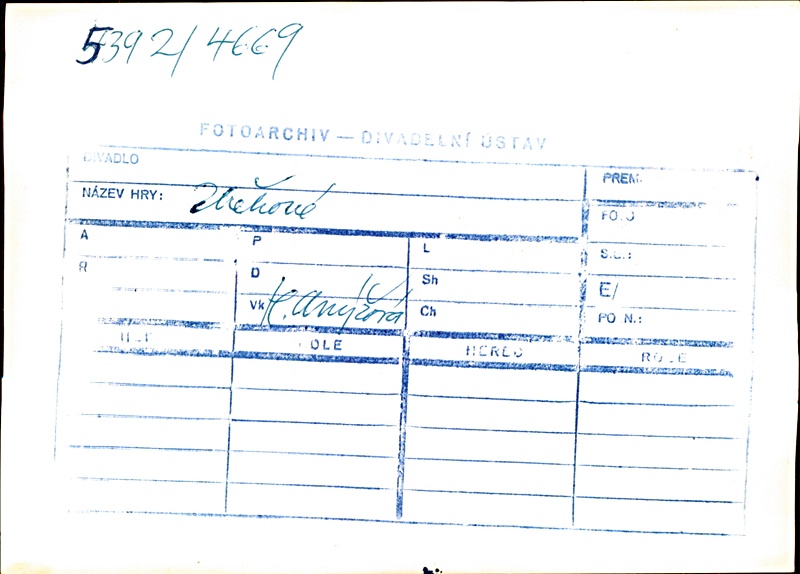 5392/4669
FOTOARCHIV — DIVADELNÍ ÚSTAV
DIVADLO
PREM.
NÁZEV HRY: Zběhové
FOTO
A
P
L
S.C.:
R
D
Sh
E/
Vk H. Anýžová
Ch
PO N.:
HEREC
ROLE
HEREC
ROLE